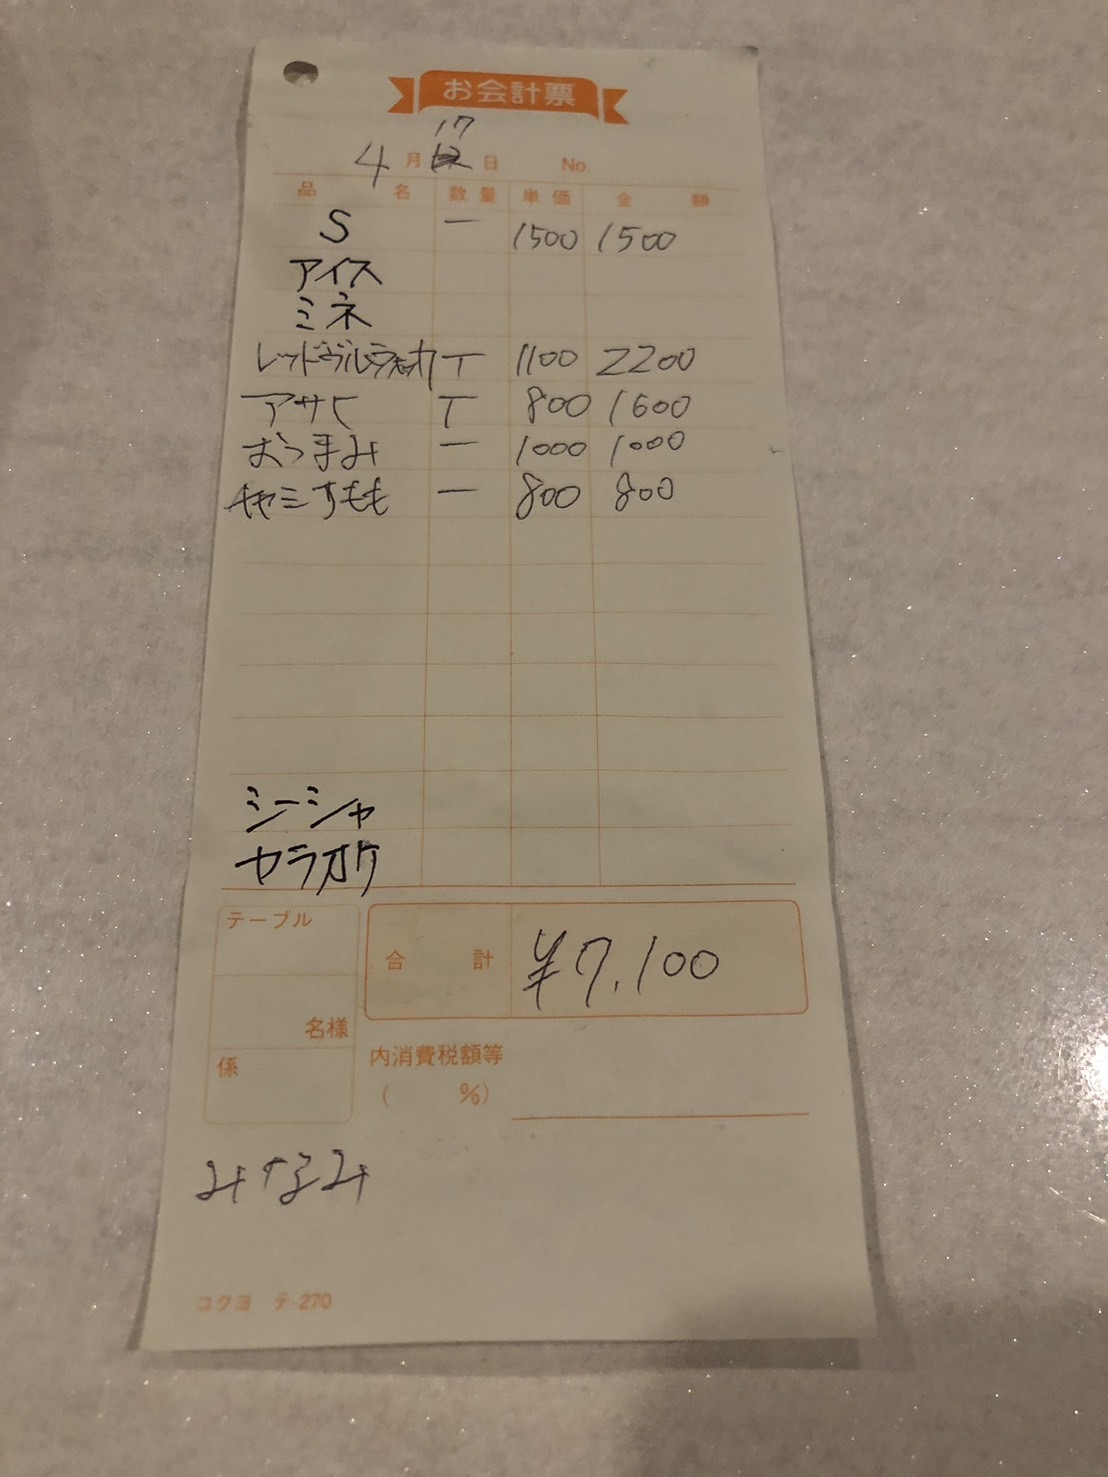 お会計票
4月17日 No.
品名 数量 単価 金額
S 一 1500 1500
アイス
ミネ
レッドブルウォッカ T 1100 2200
アサヒ T 800 1600
おつまみ 一 1000 1000
すもも 一 800 800
シーシャ
カラオケ
テーブル
合計 ¥7,100
名様
係
内消費税額等
( %)
みなみ
コクヨ テ-270